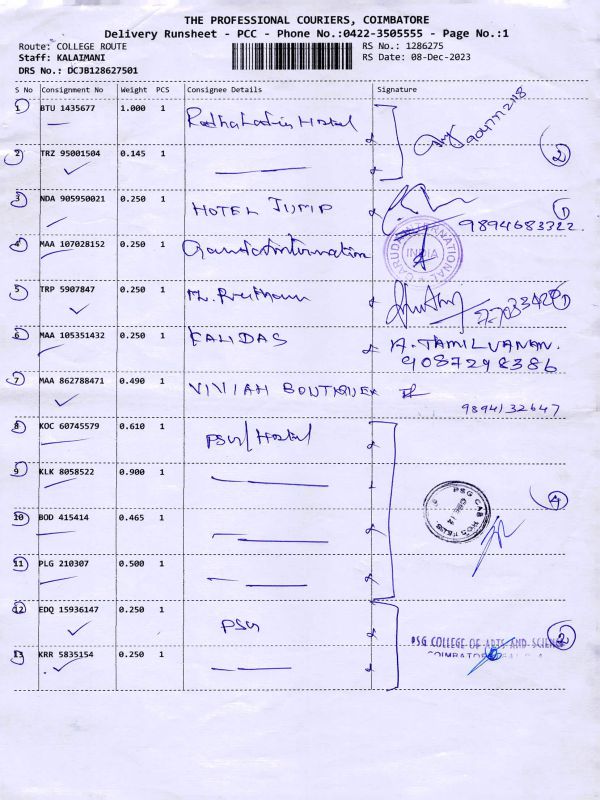 THE PROFESSIONAL COURIERS, COIMBATORE
Delivery Runsheet - PCC - Phone No.:0422-3505555 - Page No.:1
Route: COLLEGE ROUTE
RS No.: 1286275
Staff: KALAIMANI
RS Date: 08-Dec-2023
DRS No.: DCJB128627501
S No Consignment No Weight PCS Consignee Details Signature
1 BTU 1435677 1.000 1 Hostel
2 TRZ 95001504 0.145 1 2
3 NDA 905950021 0.250 1 HOTEL JUMP 9894683322 1
4 MAA 107028152 0.250 1 INTERNATIONAL INDIA
5 TRP 5907847 0.250 1
6 MAA 105351432 0.250 1 KALIDAS A. TAMILVANAN.
9087298386
7 MAA 862788471 0.490 1 VIVIAH 9894132647
8 KOC 60745579 0.610 1 PSG/Hostel
9 KLK 8058522 0.900 1 PSG 4
10 BOD 415414 0.465 1
11 PLG 210307 0.500 1
12 EDQ 15936147 0.250 1 PSG
PSG COLLEGE OF ARTS AND SCIENCE 2
13 KRR 5835154 0.250 1